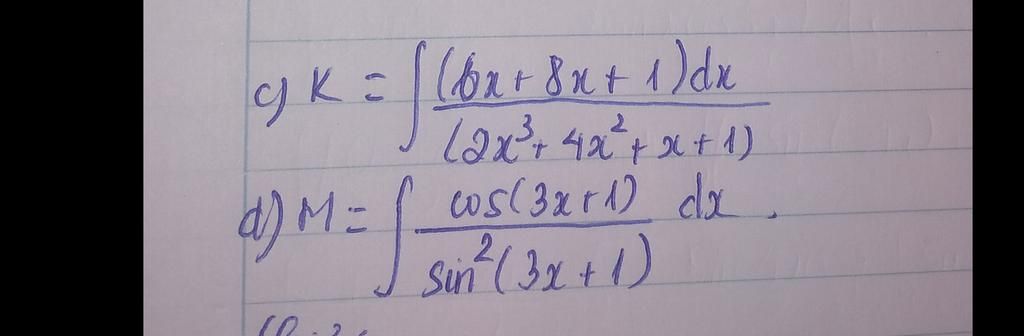 c) K = ∫ (6x + 8x + 1)dx / (2x³ + 4x² + x + 1)
d) M = ∫ cos(3x + 1) / sin²(3x + 1) dx.